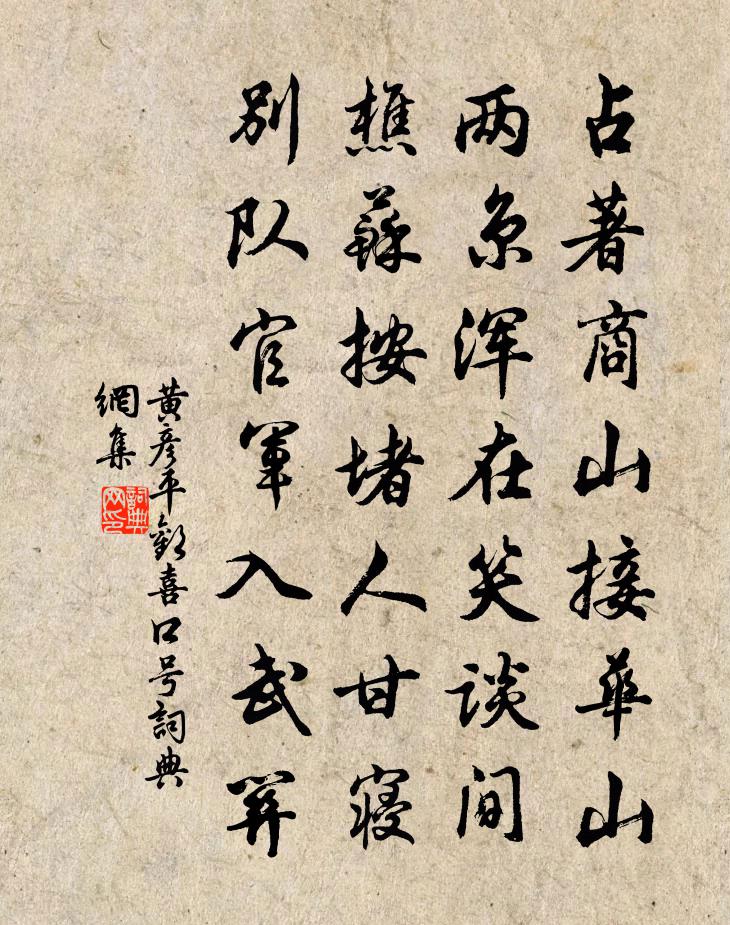 占著商山接華山
两京浑在笑谈间
樵蘇按堵人甘寝
别队官军入武关
黄彦平歡喜口号詞典
網集
詞典
网印